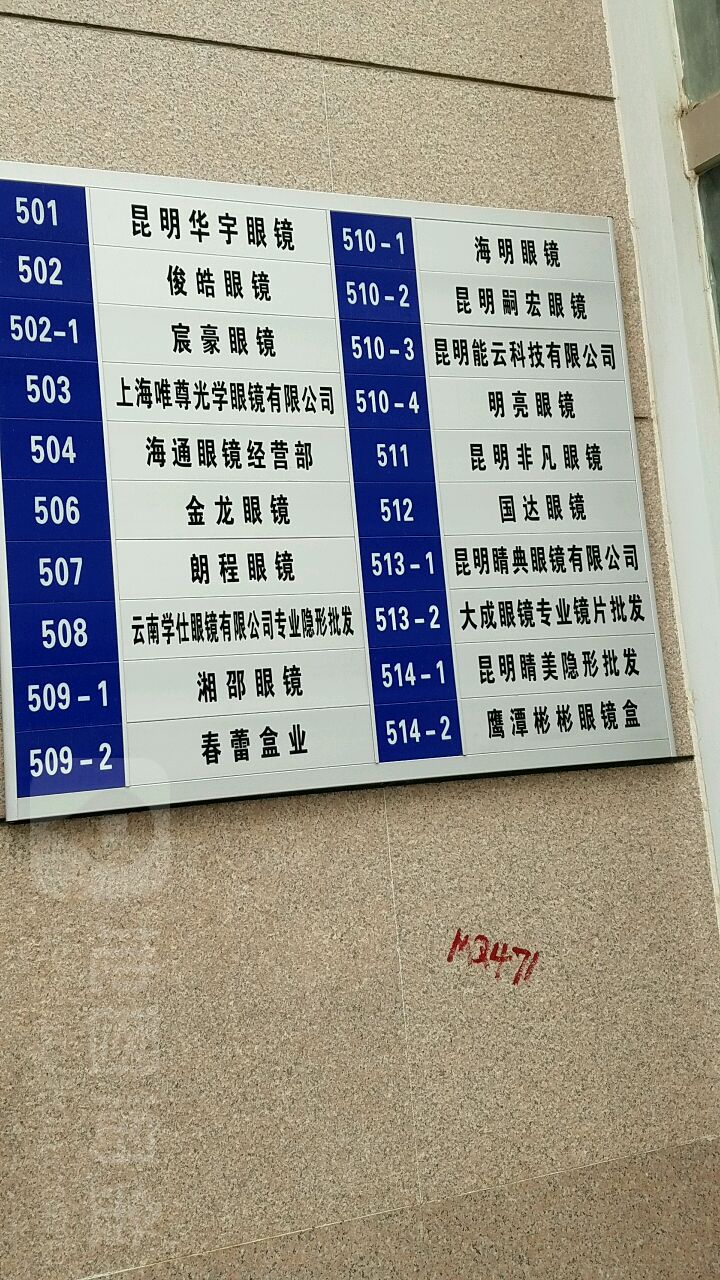 501 昆明华宇眼镜
502 俊皓眼镜
502-1 宸豪眼镜
503 上海唯尊光学眼镜有限公司
504 海通眼镜经营部
506 金龙眼镜
507 朗程眼镜
508 云南学仕眼镜有限公司专业隐形批发
509-1 湘邵眼镜
509-2 春蕾盒业
510-1 海明眼镜
510-2 昆明嗣宏眼镜
510-3 昆明能云科技有限公司
510-4 明亮眼镜
511 昆明非凡眼镜
512 国达眼镜
513-1 昆明睛典眼镜有限公司
513-2 大成眼镜专业镜片批发
514-1 昆明睛美隐形批发
514-2 鹰潭彬彬眼镜盒
MQ471